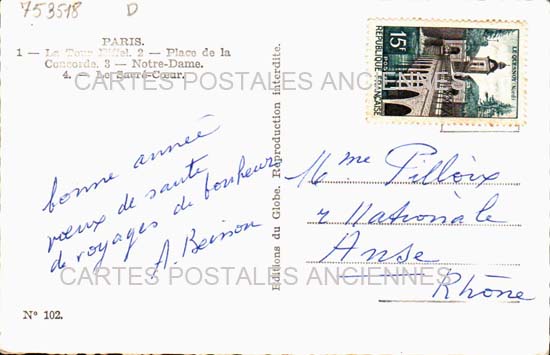 753518 D
PARIS.
1 — La Tour Eiffel. 2 — Place de la
Concorde. 3 — Notre-Dame.
4. — Le Sacré-Cœur.
bonne année
vœux de santé
de voyages de bonheur
A. Besson
N° 102.
Editions du Globe. Reproduction interdite.
15F
REPUBLIQUE FRANÇAISE
POSTES
LE QUESNOY (Nord)
Mme Pilloix
r Nationale
Anse
Rhône
CARTES POSTALES ANCIENNES
CARTES POSTALES ANCIENNES